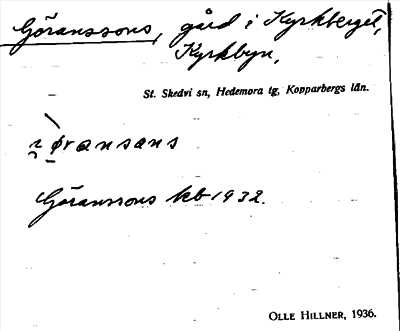 Göranssons, gård i Kyrkberget,
Kyrkbyn,
St. Skedvi sn, Hedemora tg, Kopparbergs län.
Göranssons kb 1932.
OLLE HILLNER, 1936.